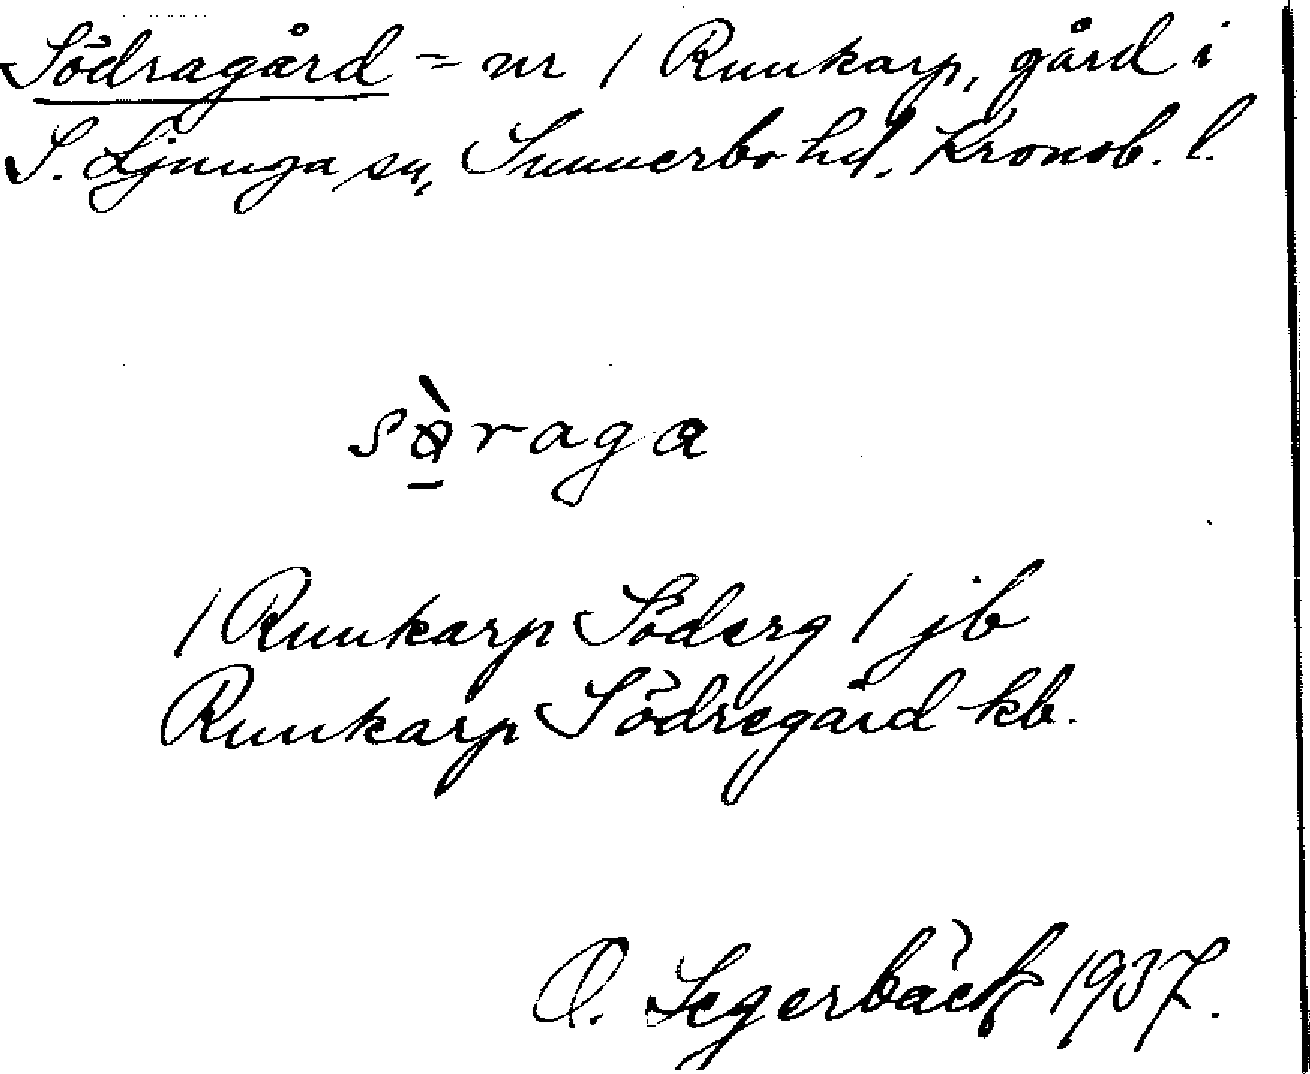 Södragård = nr 1 Runkarp, gård i
S. Ljunga sn, Sunnerbo hd. Kronob. l.
sàraga
1 Runkarp Söderg 1 jb
Runkarp Södregård kb.
O. Segerbäck 1937.